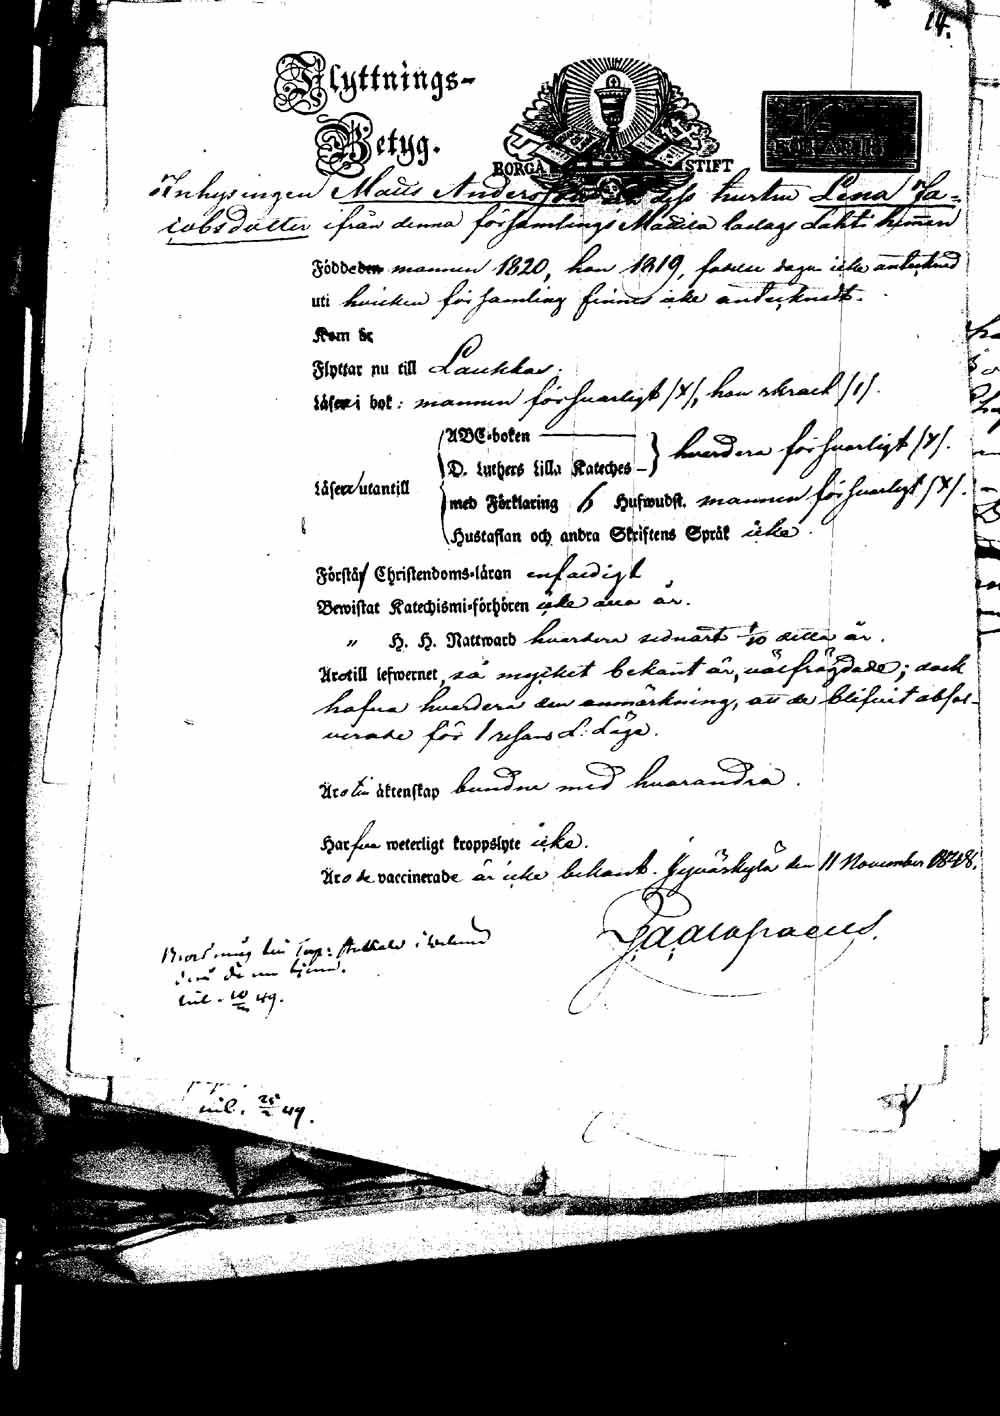 14.
Flyttnings-
Betyg.
BORGÅ STIFT
Inhysingen Matts Andersson och dess hustru Lena Ja-
cobsdotter ifrån denna församlings Mattila Lahti hemman
Födde den mannen 1820, hon 1819, födelse dagen icke antecknad
uti hvilken församling finnes icke antecknadt.
Kom de
Flyttar nu till Laukkas.
Läser i bok: mannen försvarligt /Y/, hon skrael /1/.
ABC-boken
D. Luthers Lilla Kateches - hvardera försvarligt /Y/.
Läser utantill
med Förklaring 6 Hufwudst. mannen försvarligt /Y/.
Hustaflan och andra Skriftens Språk icke.
Förstår Christendoms-läran enfaldigt
Bewistat Katechismi-förhören icke alla år.
" H. H. Nattward hvardera sednast 1/10 detta år.
Äro till lefwernet, så mycket bekant är, välfrägdade; dock
hafva hvardera den anmärkning, att de blifvit absol-
verade för 1 resans L: Läge.
Äro till äktenskap bundne med hvarandra.
Harfva weterligt kroppslyte icke.
Äro de vaccinerade är icke bekant. Jyväskylä den 11 November 1848.
i
49.
49.